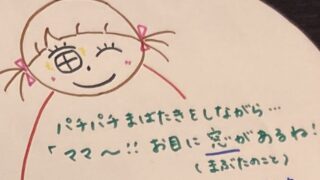 パチパチまばたきをしながら…
「ママ〜!! お目に窓があるね!
(まぶたのこと)